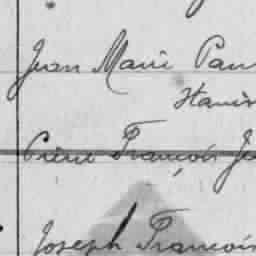 Jean Marie Pau
Stanis
Pierre François Je
Joseph François